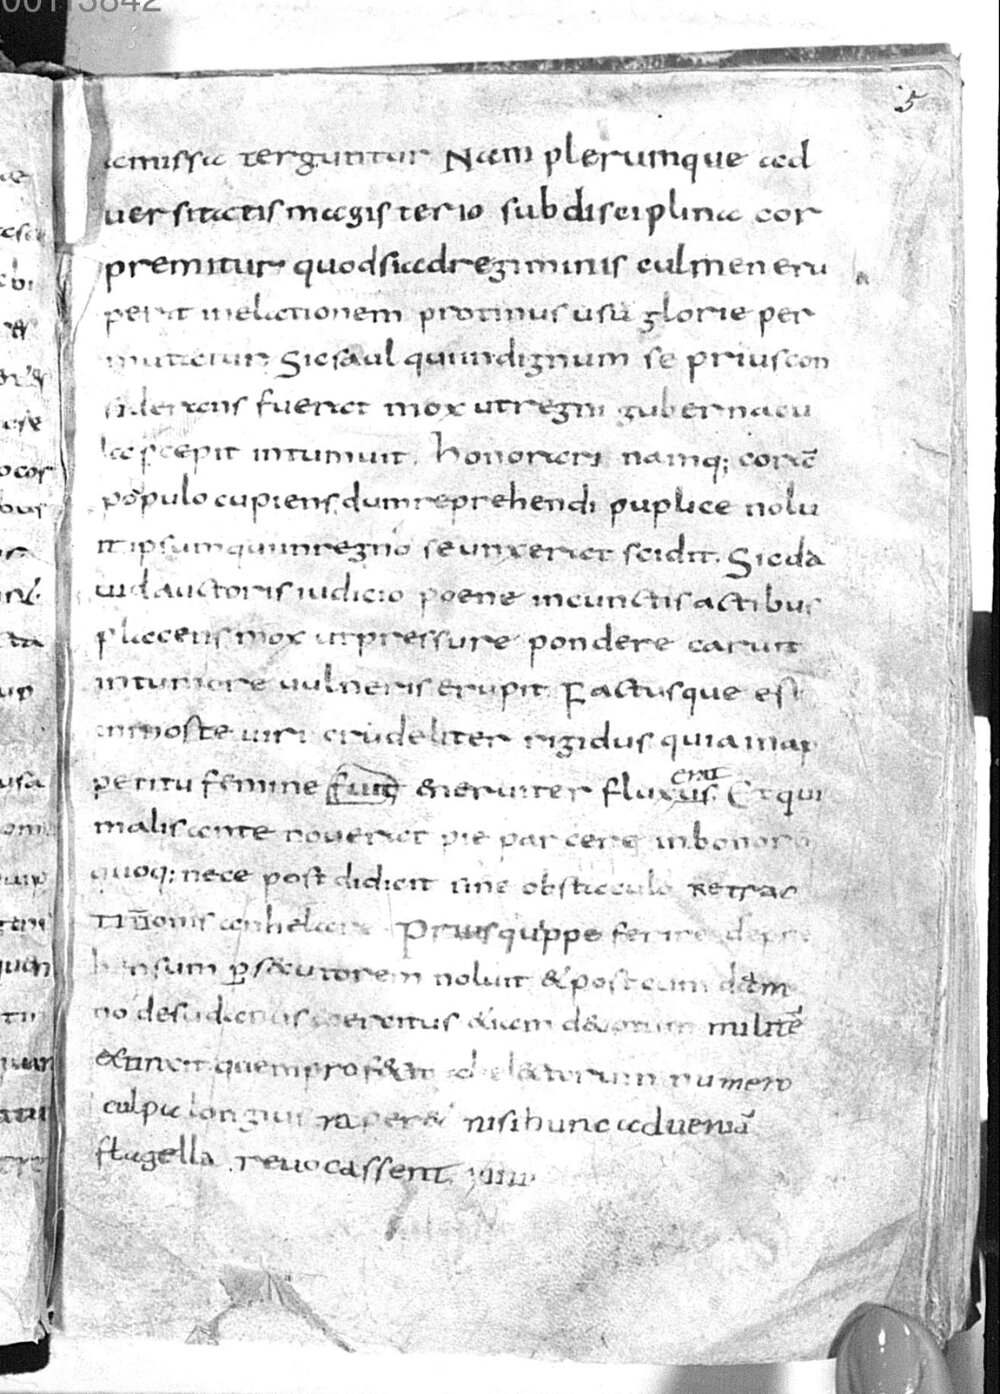 00113842
5
amissa terguntur Nam plerumque ad
uersitatis magisterio sub disciplina cor
premitur quod si ad regiminis culmen eru
perit in elationem protinus usū glorie per
mutatur, Sic saul qui indignum se prius con
siderans fuerat mox ut regni gubernacu
la suscepit intumuit. honorari namq; corā
populo cupiens, dum reprehendi puplice nolu
it ipsum qui in regno se unxerat scidit. Sic da
uid auctoris iudicio poene in cunctis actibus
placens mox ut pressure pondere caruit
in tumore uulneris erupit. Factusque est
in morte uiri crudeliter rigidus quia in ap
petitu femine fuit &neruiter fluxus. erat Et qui
malis ante nouerat pie parcere in bonorū
quoq; nece post didicit sine obstaculo retrac
tationis anhelare. Prius quippe ferire depre
hensum p̱secutorem noluit & post cum dam
no desudantis exercitus &iam d&otum militē
extinxit quem profecto ab electorum numero
culpa longius raper& nisi hunc ad ueniā
flagella reuocassent